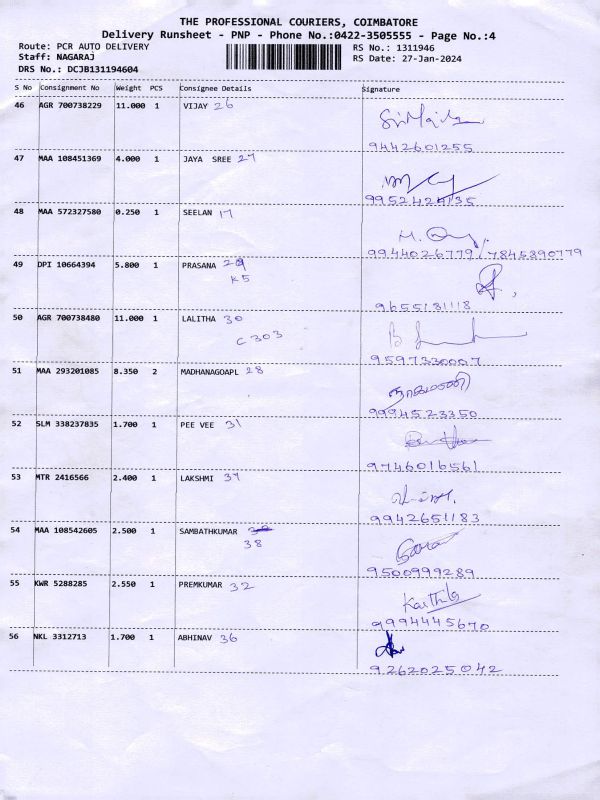 THE PROFESSIONAL COURIERS, COIMBATORE
Delivery Runsheet - PNP - Phone No.:0422-3505555 - Page No.:4
Route: PCR AUTO DELIVERY RS No.: 1311946
Staff: NAGARAJ RS Date: 27-Jan-2024
DRS No.: DCJB131194604
S No Consignment No Weight PCS Consignee Details Signature
46 AGR 700738229 11.000 1 VIJAY 26
9442601255
47 MAA 108451369 4.000 1 JAYA SREE 27
9952424135
48 MAA 572327580 0.250 1 SEELAN 17
9944026779 / 7845390779
49 DPI 10664394 5.800 1 PRASANA 29
K5
9655131118
50 AGR 700738480 11.000 1 LALITHA 30
C 303
9597330007
51 MAA 293201085 8.350 2 MADHANAGOAPL 28
நாகமணி
9994523350
52 SLM 338237835 1.700 1 PEE VEE 31
9746016561
53 MTR 2416566 2.400 1 LAKSHMI 37
9942651183
54 MAA 108542605 2.500 1 SAMBATHKUMAR
38
9500999289
55 KWR 5288285 2.550 1 PREMKUMAR 32
Karthik
9994445670
56 NKL 3312713 1.700 1 ABHINAV 36
9262025042